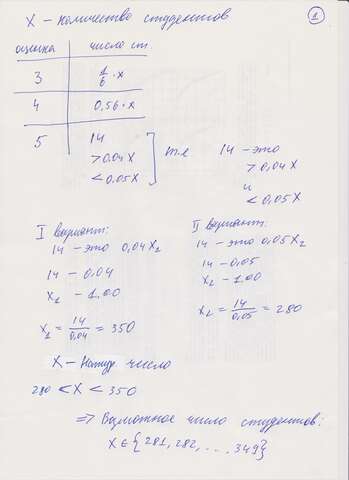 X – количество студентов
1
оценка число ст.
3 1/6 · x
4 0,56 · x
5 14
> 0.04 X
< 0.05 X
т.е
14 – это
> 0,04 X
и
< 0,05 X
I вариант:
14 – это 0,04 X₂
14 – 0.04
X₁ – 1.00
X₁ = 14/0.04 = 350
II вариант:
14 – это 0,05 X₂
14 – 0.05
X₂ – 1.00
X₂ = 14/0,05 = 280
X – натур. число
280 < X < 350
⇒ Возможное число студентов:
X ∈ {281, 282, ... 349}